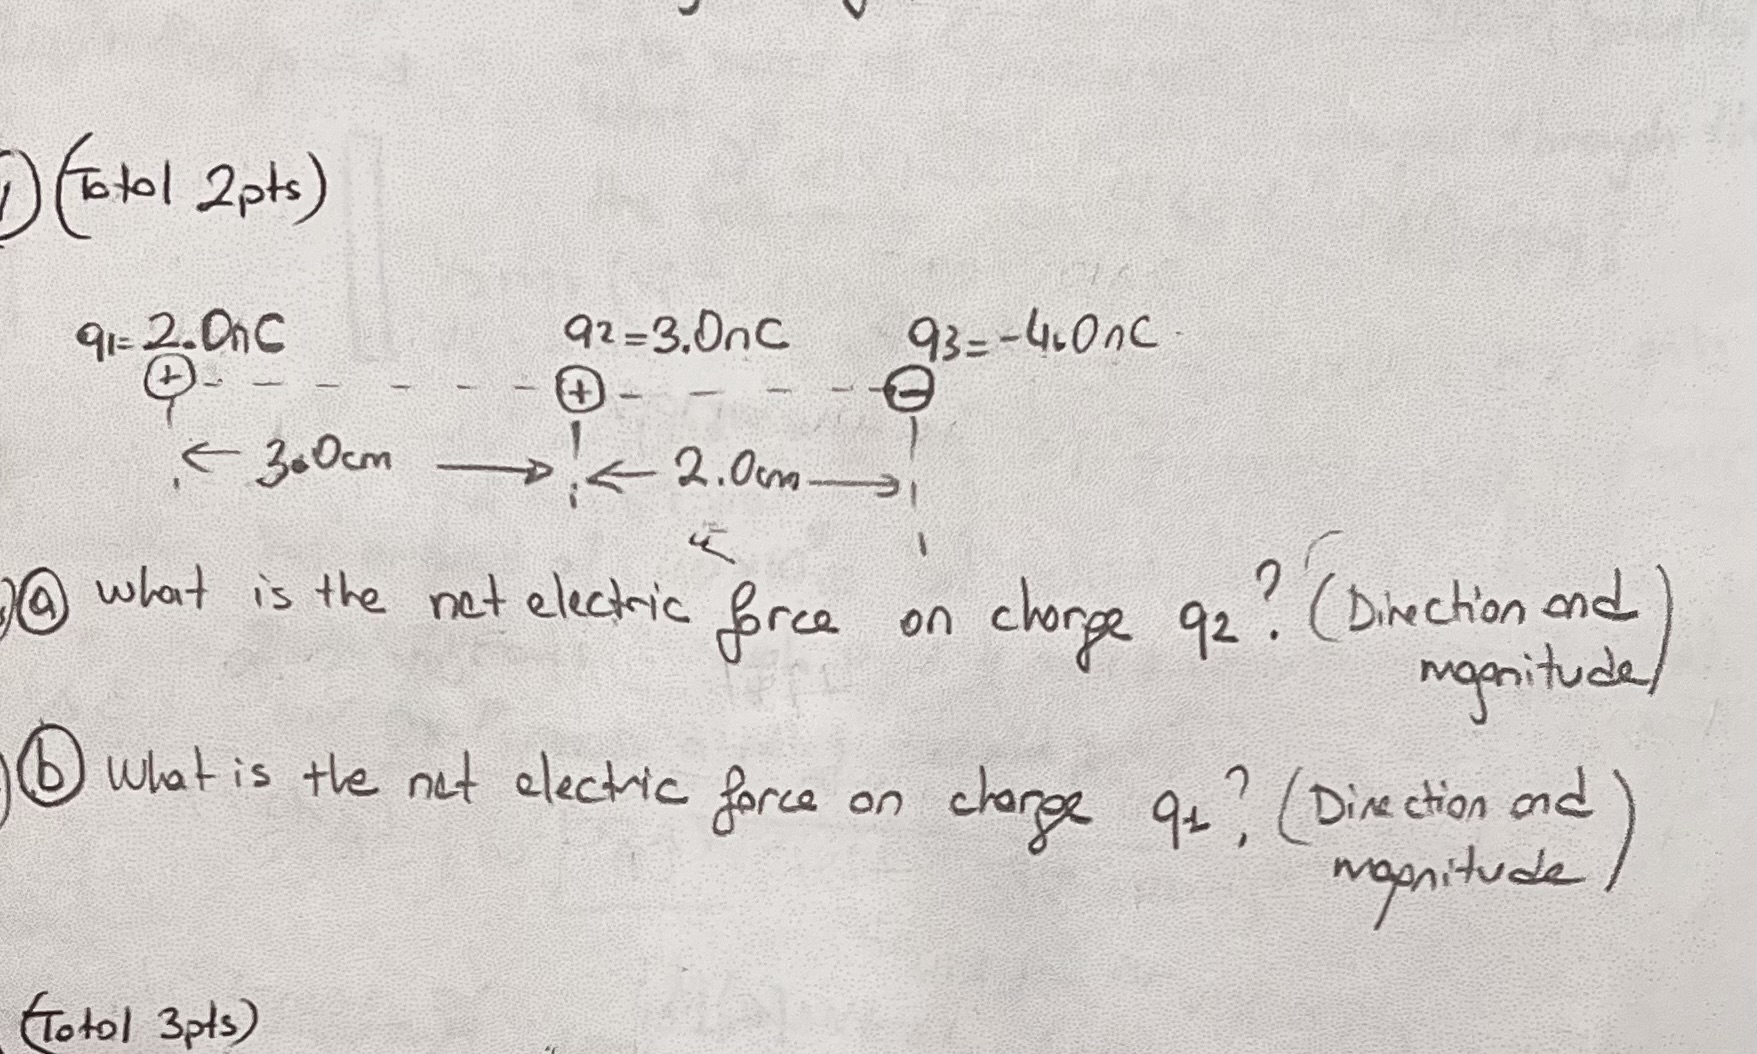 ① (Total 2pts)
q1= 2.0nC q2=3.0nC q3=-4.0nC
+ + −
← 3.0cm → ← 2.0cm →
ⓐ What is the net electric force on charge q2? (Direction and
magnitude)
ⓑ What is the net electric force on charge q1? (Direction and
magnitude)
(Total 3pts)